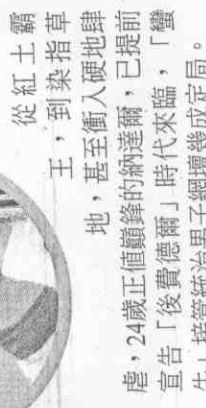 從紅土霸
王，到染指草
地，甚至衝入硬地肆
虐，24歲正值巔峰的納達爾，已提前
宣告「後費德爾」時代來臨，「蠻
牛」接管統治男子網壇幾成定局。